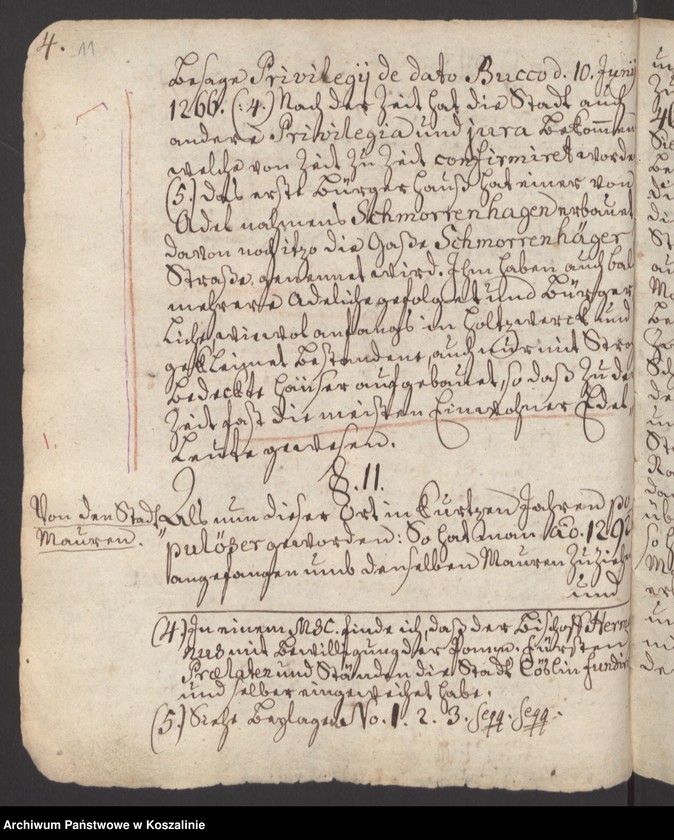 4. 11
Besage Privilegij de dato Bucco d. 10. Junij
1266. (4.) Nach der Zeit hat die Stadt auch
andere Privilegia und jura bekommen
welche von Zeit zu Zeit confirmiret worde
(5.) das erste Bürger Hauß hat einer von
Adel nahmens Schmorrenhagen erbauet
davon noch itzo die Gaße Schmorrenhäger
Straße, genennet wird. Ihm haben auch bal
mehrere Adeliche gefolget und Bürger
Liche wiewol anfangs in Holtzwerck und
gekleimet bestandene, auch nur mit Stro
bedeckte Häuser aufgebauet, so daß zu de
Zeit fast die meisten Einwohner Edel-
Leute gewesen.
§. 11.
Von den Stadt
Mauren.
Als nun dieser Ort in kurtzen Jahren po
pulöser geworden: So hat man Ao. 129
angefangen umb denselben Mauren zu zieh
und
(4) In einem MSC. finde ich, daß der Bischoff Herm
nus mit Bewilligung der Pomm. Fürsten
Prælaten und Ständen die Stadt Cößlin fundir
und selber eingeweihet habe.
(5.) Siehe Beylagen No. 1. 2. 3. seqq. seqq.
Archiwum Państwowe w Koszalinie